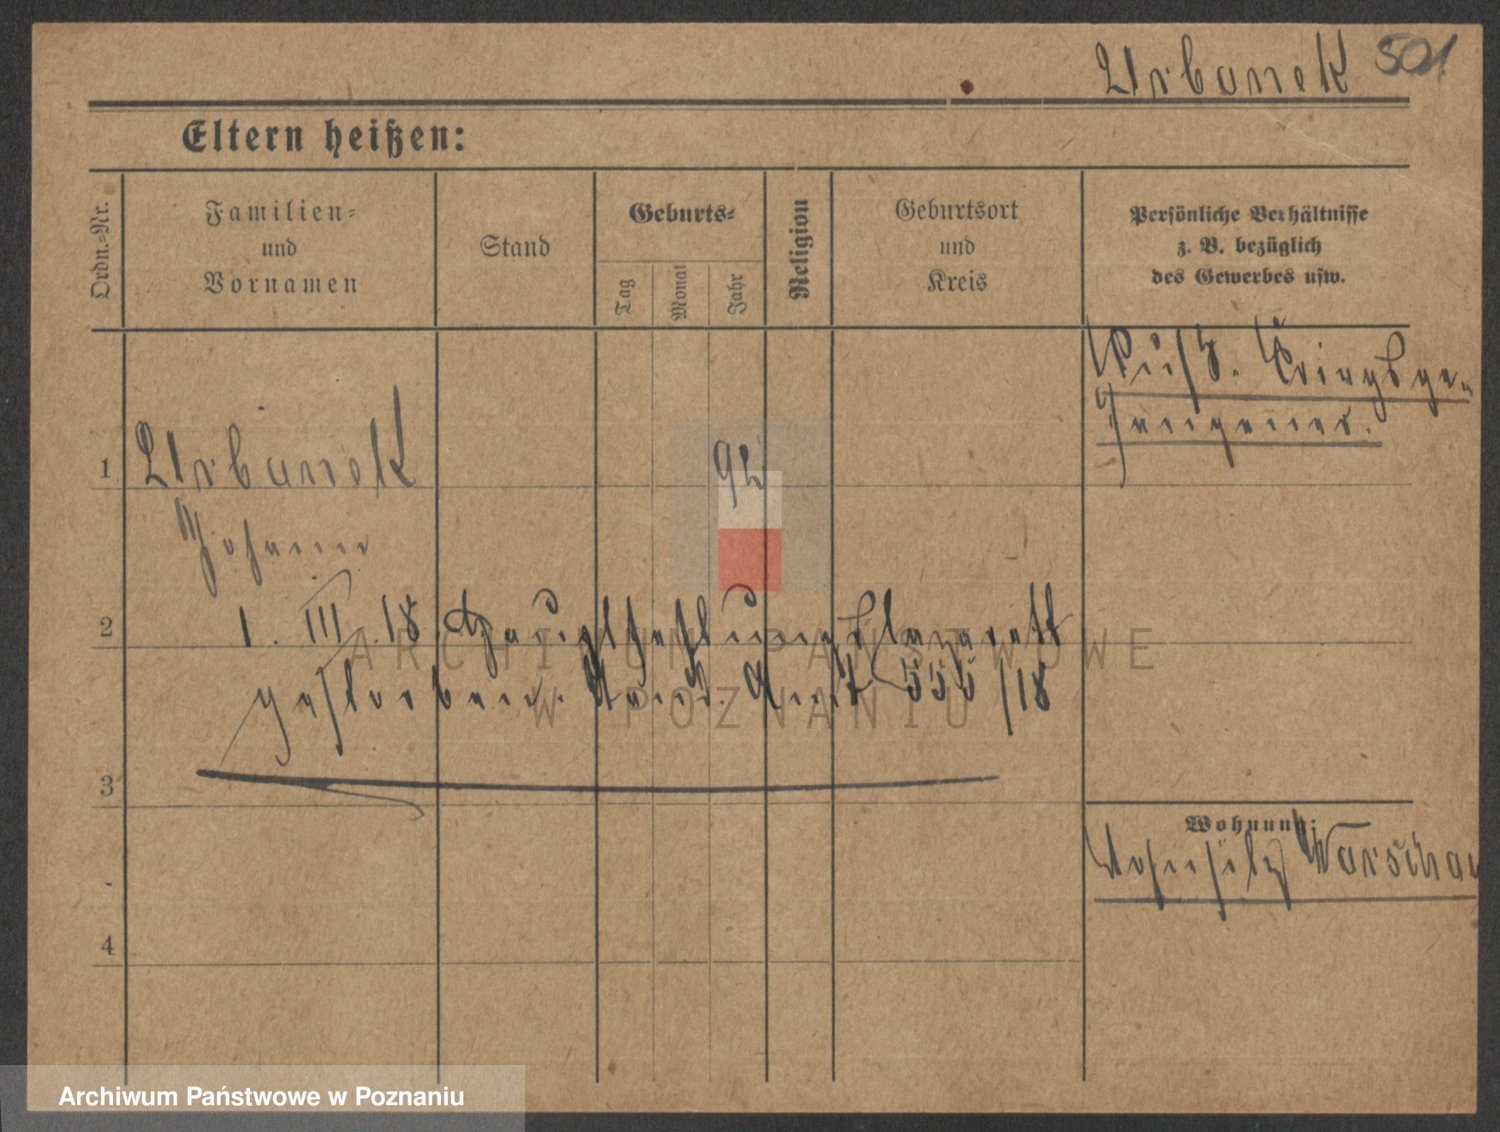 Urbanek 501
Eltern heißen:
Ordn.=Nr.
Familien=
und
Vornamen
Stand
Geburts=
Tag
Monat
Jahr
Religion
Geburtsort
und
Kreis
Persönliche Verhältnisse
z. B. bezüglich
des Gewerbes usw.
Russ. Kriegsge-
fangener.
1 Urbanek 92
Johann
2 1. III. 18 Hauptfestungslazarett
gestorben. Stand. Amt 555/18
3
Wohnung:
Wohnsitz Warschau
4
ARCHIWUM PAŃSTWOWE
W POZNANIU
Archiwum Państwowe w Poznaniu